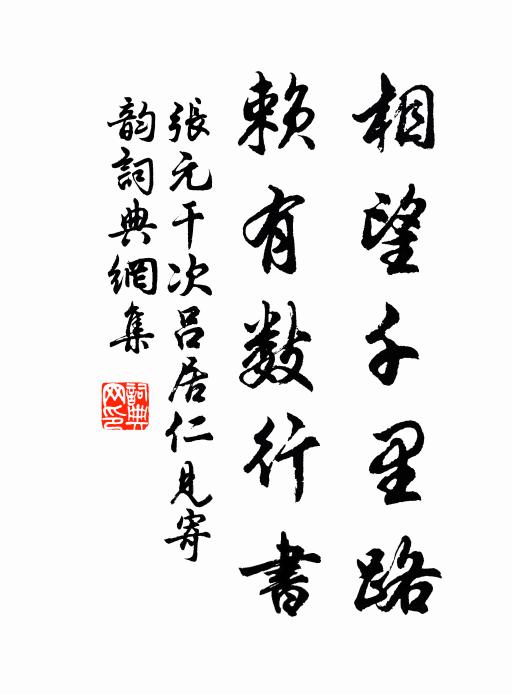 相望千里路
賴有數行書
張元干次呂居仁見寄
韵詞典網集
詞典网印